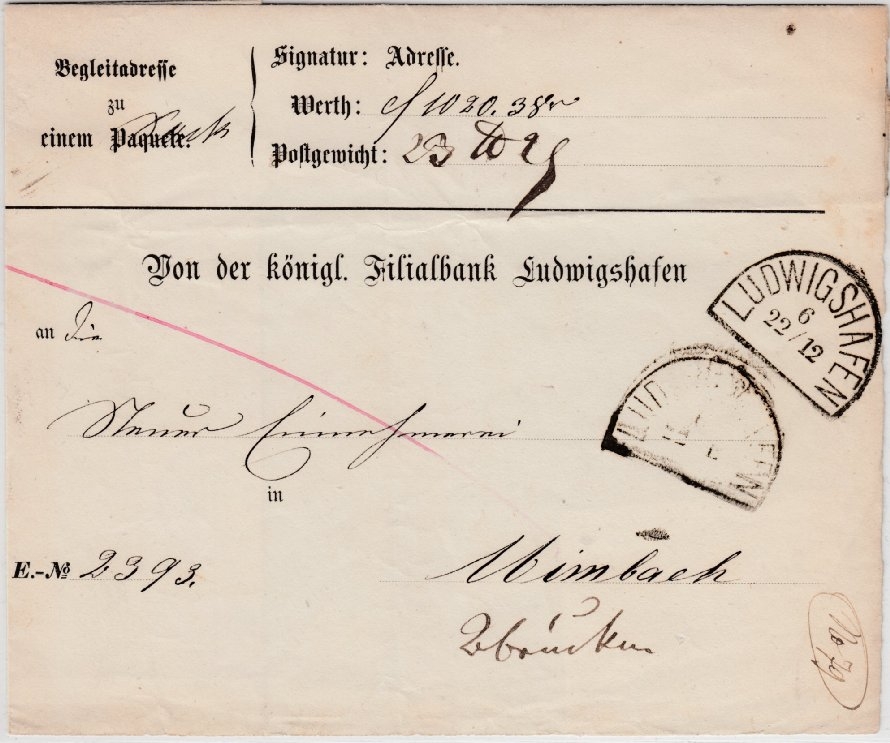 Begleitadresse
zu
einem Paquete.
Signatur: Adresse.
Werth: f 1020. 38 xr
Postgewicht: 23
Von der königl. Filialbank Ludwigshafen
an die
Steuer Einnehmerei
in
E.-No 2393.
Mimbach
Zbrücken
LUDWIGSHAFEN
6
22/12
LUDWIGSHAFEN